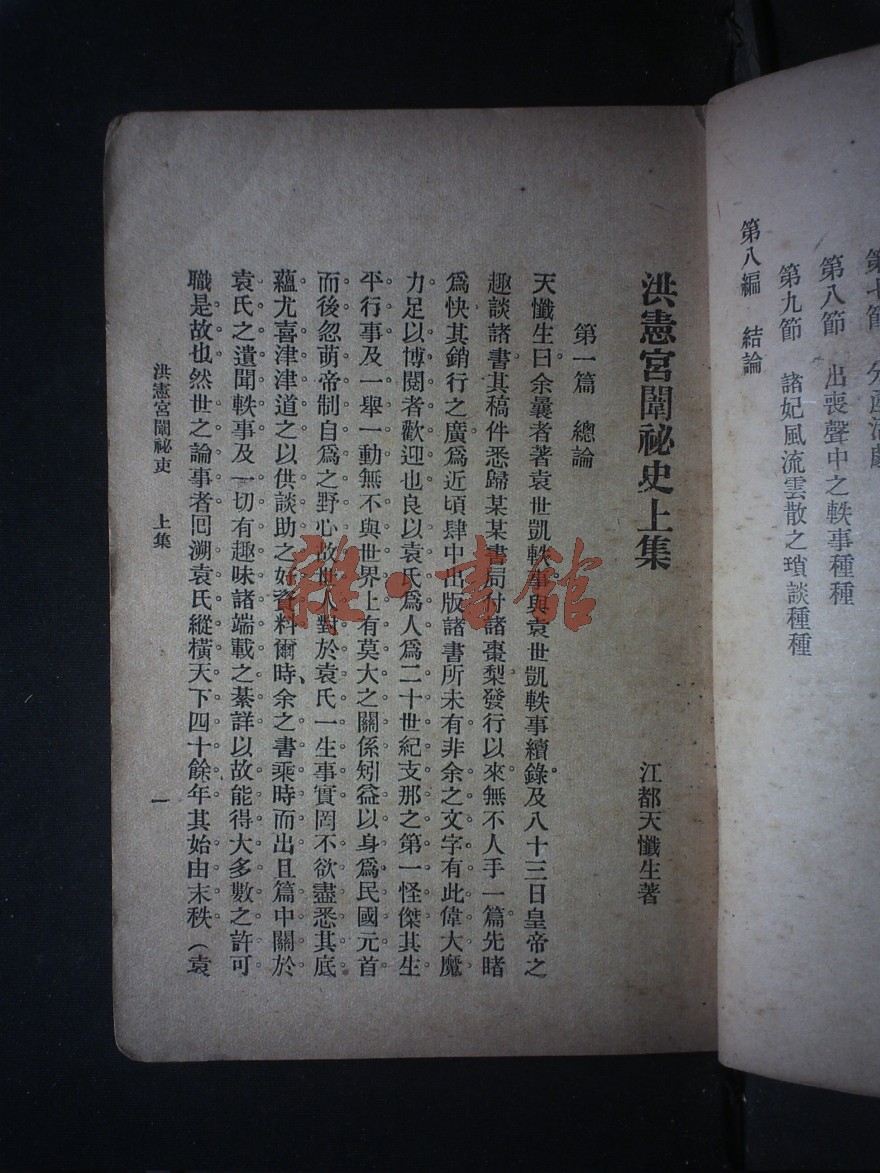 第七節　分產活劇
第八節　出喪聲中之軼事種種
第九節　諸妃風流雲散之瑣談種種
第八編　結論
洪憲宮闈祕史上集
江都天懺生著
第一篇　總論
天懺生曰余曩者著袁世凱軼事與袁世凱軼事續錄及八十三日皇帝之
趣談諸書其稿件悉歸某某書局付諸棗梨發行以來無不人手一篇先睹
爲快其銷行之廣爲近頃肆中出版諸書所未有非余之文字有此偉大魔
力足以博閱者歡迎也良以袁氏爲人爲二十世紀支那之第一怪傑其生
平行事及一舉一動無不與世界上有莫大之關係矧益以身爲民國元首
而後忽萌帝制自爲之野心故世人對於袁氏一生事實罔不欲盡悉其底
蘊尤喜津津道之以供談助之好資料爾時、余之書乘時而出且篇中關於
袁氏之遺聞軼事及一切有趣味諸端載之綦詳以故能得大多數之許可
職是故也然世之論事者回溯袁氏縱橫天下四十餘年其始由末秩（袁
洪憲宮闈祕史　上集
一
雜·書館